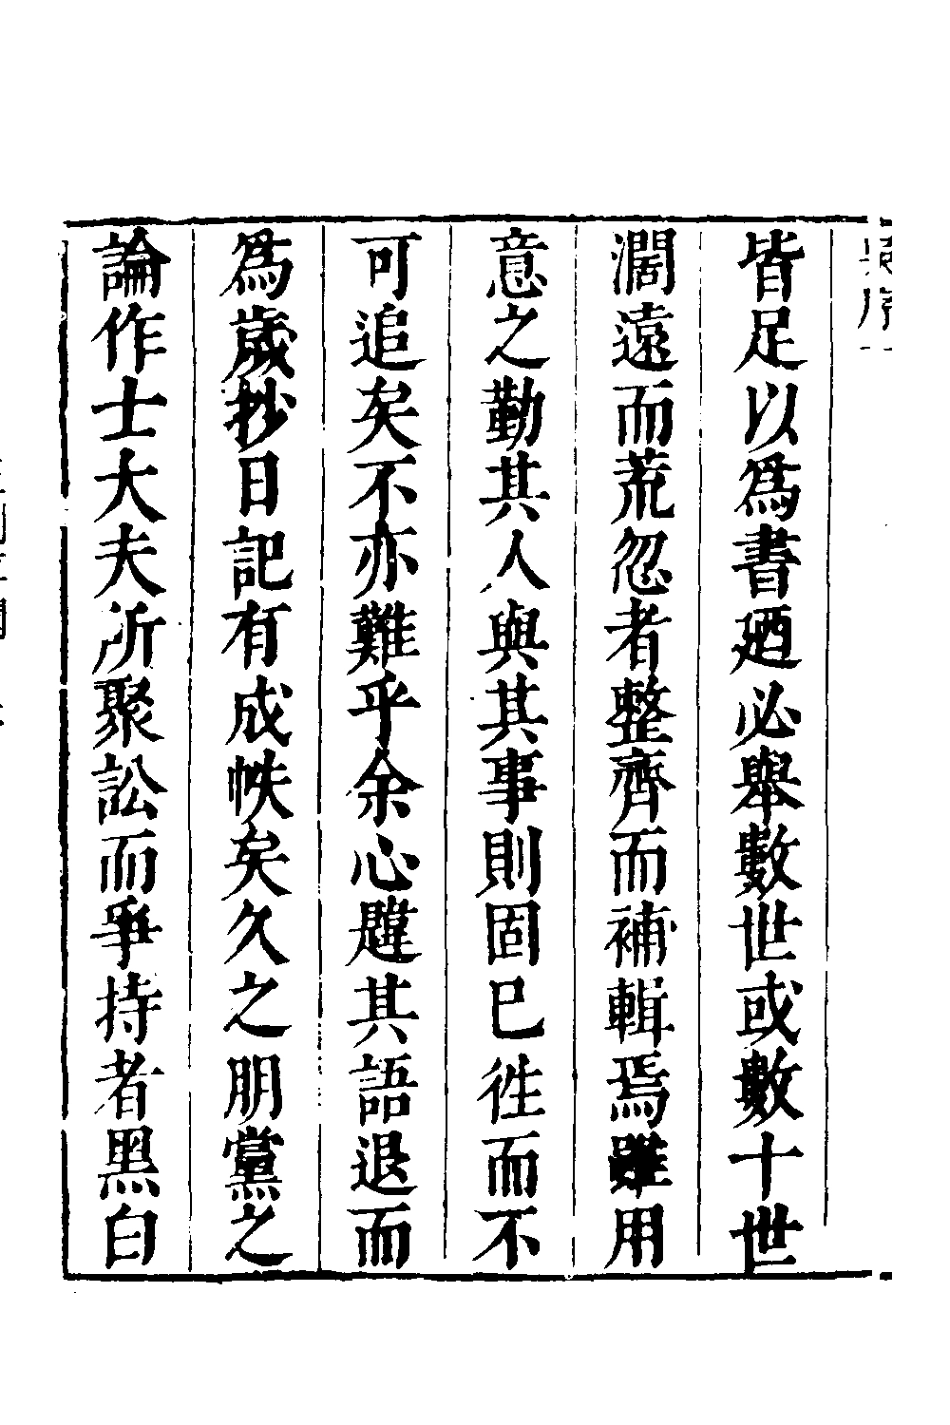 皆足以爲書廼必舉數世或數十世
濶遠而荒忽者整齊而補輯焉雖用
意之勤其人與其事則固巳徃而不
可追矣不亦難乎余心韙其語退而
爲歲抄日記有成帙矣久之朋黨之
論作士大夫所聚訟而爭持者黑白